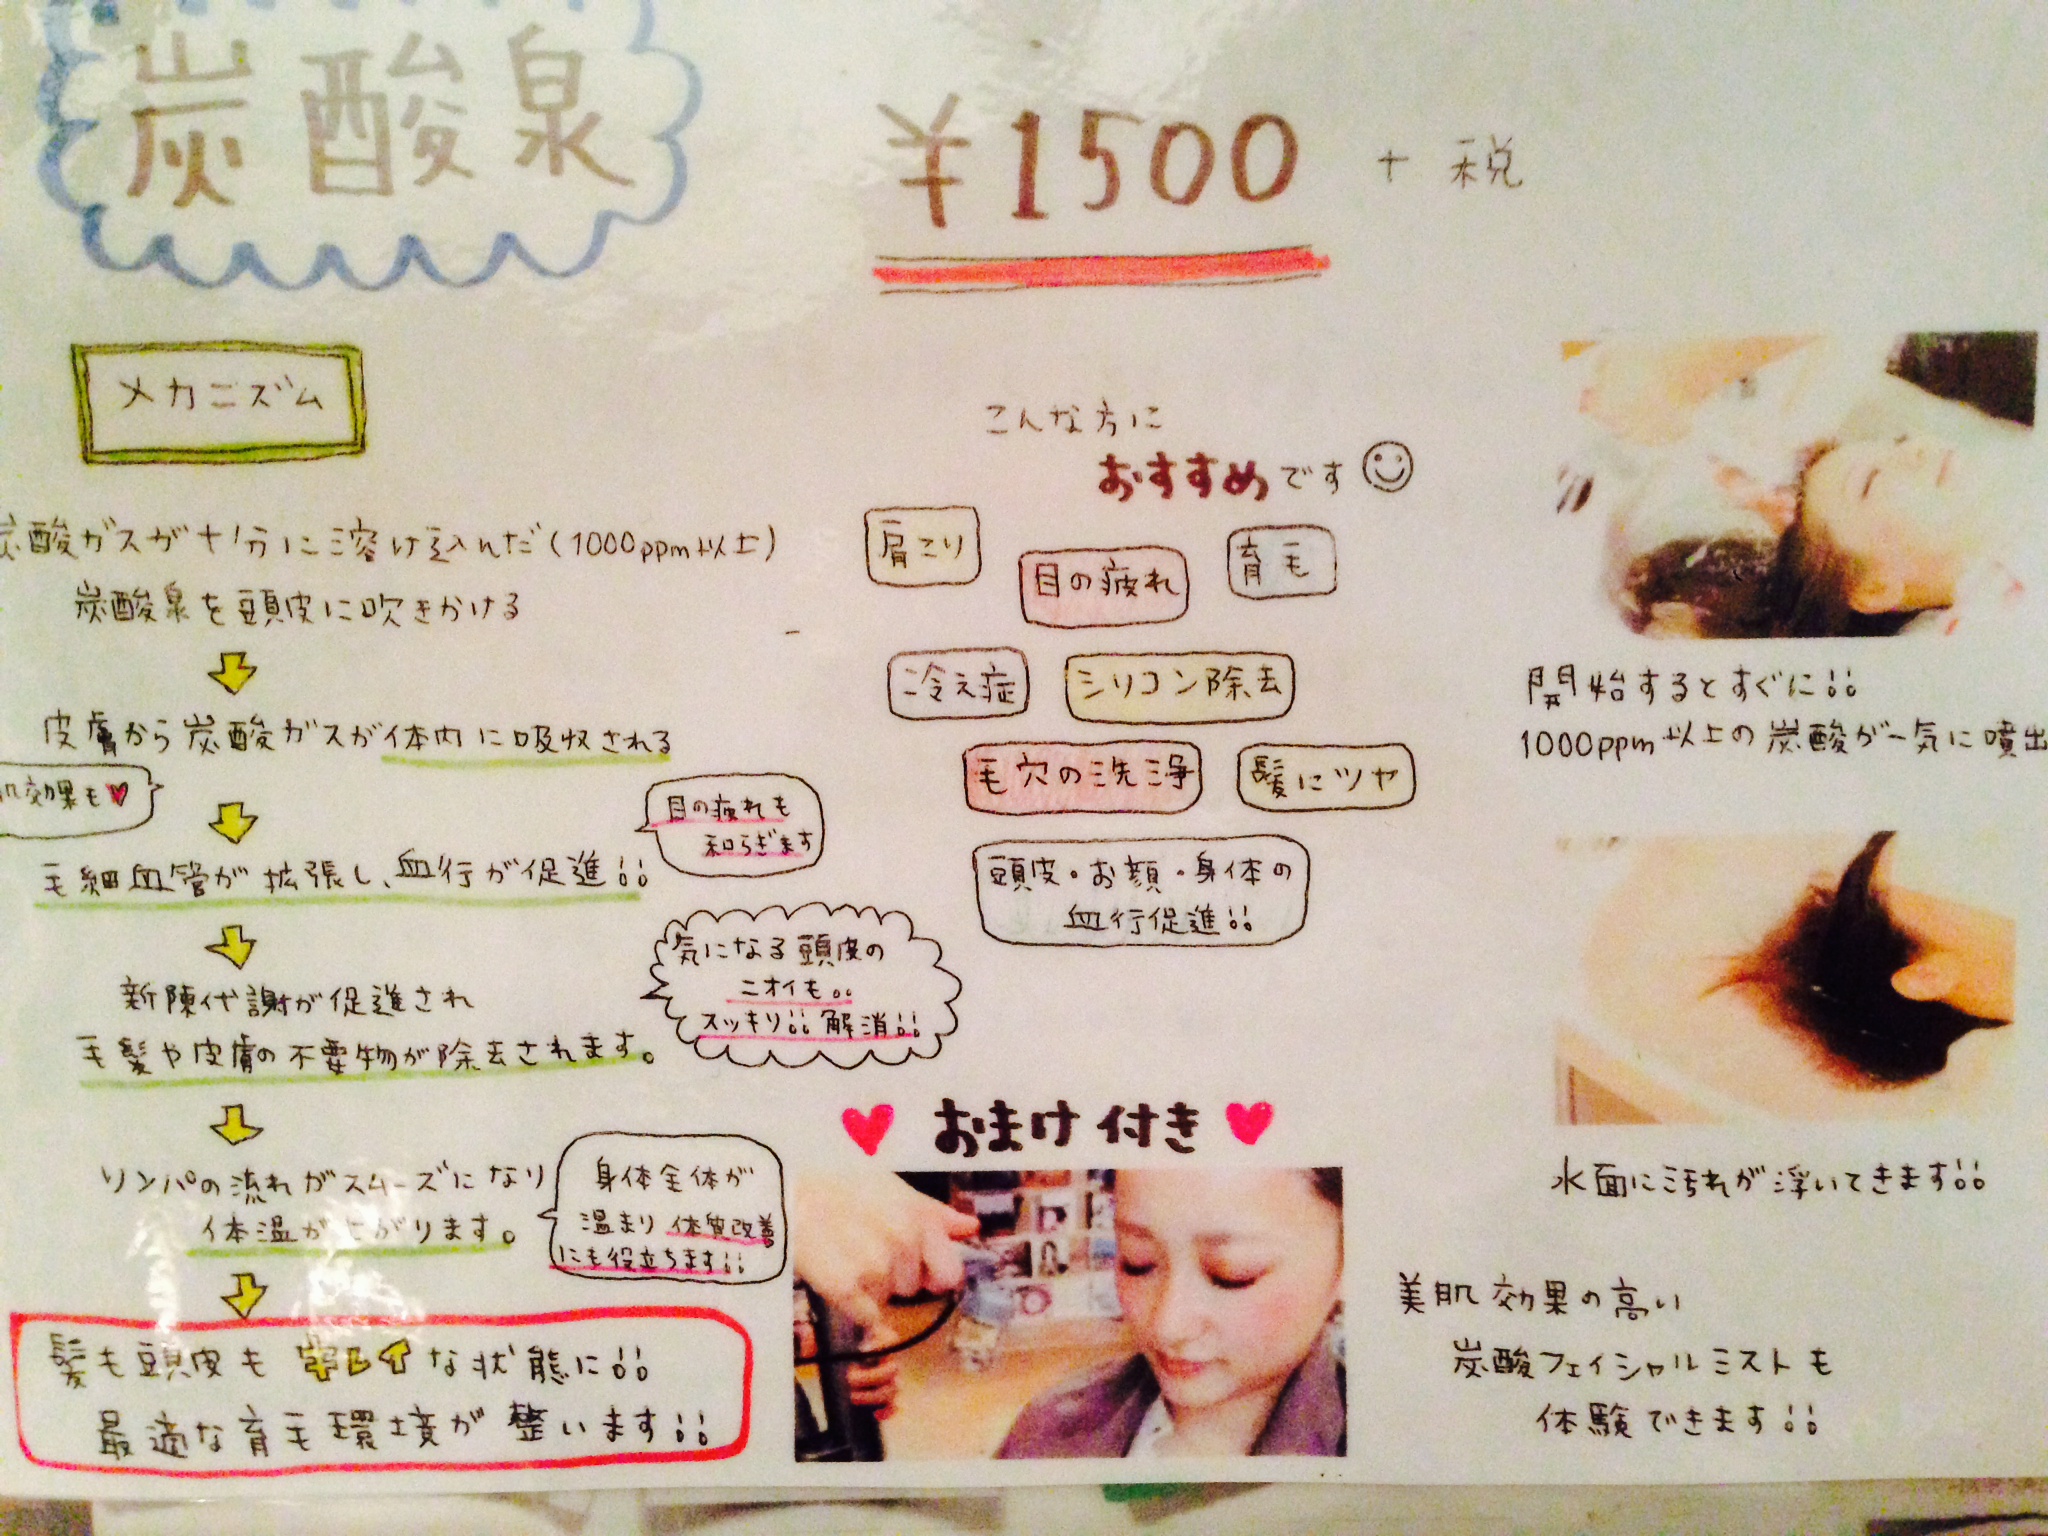 炭酸泉
¥1500 + 税
メカニズム
炭酸ガスが十分に溶け込んだ(1000ppm以上)
炭酸泉を頭皮に吹きかける
皮膚から炭酸ガスが体内に吸収される
肌効果も♥
毛細血管が拡張し、血行が促進!!
目の疲れも
和らぎます
新陳代謝が促進され
毛髪や皮膚の不要物が除去されます。
気になる頭皮の
ニオイも!!
スッキリ!!解消!!
リンパの流れがスムーズになり
体温が上がります。
身体全体が
温まり体質改善
にも役立ちます!!
髪も頭皮もキレイな状態に!!
最適な育毛環境が整います!!
こんな方に
おすすめです
肩こり
目の疲れ
育毛
冷え症
シリコン除去
毛穴の洗浄
髪にツヤ
頭皮・お顔・身体の
血行促進!!
♥おまけ付き♥
開始するとすぐに!!
1000ppm以上の炭酸が一気に噴出
水面に汚れが浮いてきます!!
美肌効果の高い
炭酸フェイシャルミストも
体験できます!!